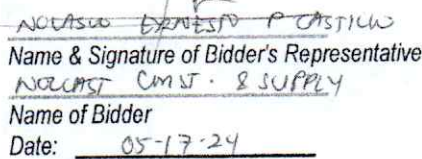 NOLASCO ERNESTO P CASTILLO
Name & Signature of Bidder's Representative
NOLCAST CONST. & SUPPLY
Name of Bidder
Date: 05-17-24